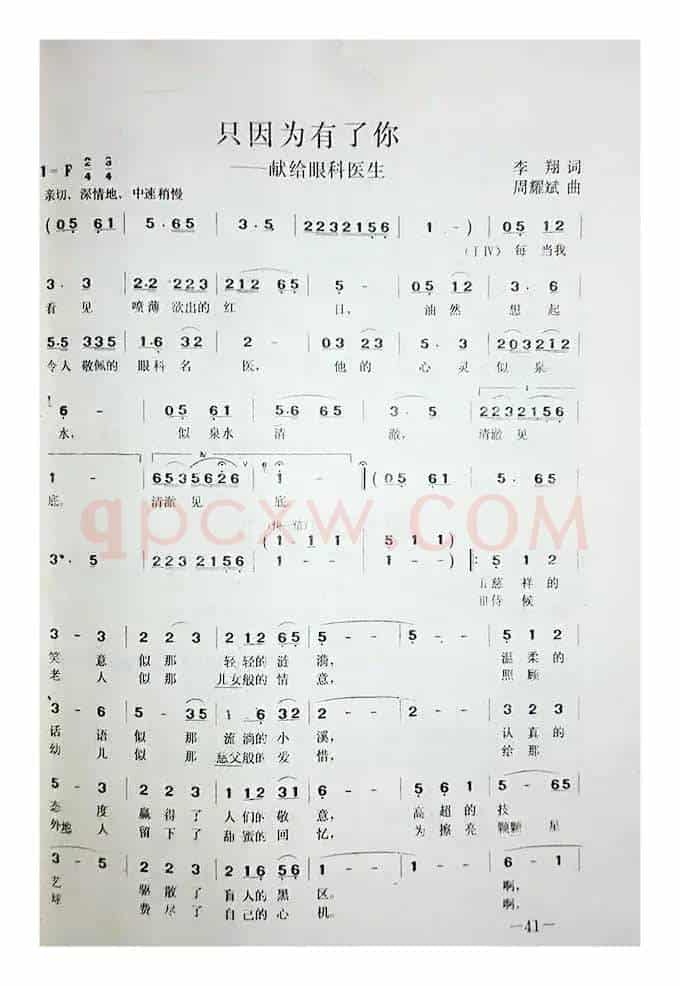 只因为有了你
——献给眼科医生
1=F 2/4 3/4
李翔词
亲切、深情地、中速稍慢
周耀斌曲
(05 61 | 5·65 | 3·5 | 2232156 | 1 -) | 05 12
(I IV) 每当我
3·3 | 2·2 223 | 212 65 | 5 - | 05 12 | 3·6
看见 喷薄欲出的红 日, 油然 想起
5·5 335 | 1·6 32 | 2 - | 03 23 | 5·3 | 203212
令人敬佩的 眼科名 医, 他的 心灵似泉
6 - | 05 61 | 5·6 65 | 3·5 | 2232156
水, 似泉水清 澈, 清澈见
1 - | 6535626 | 1 - | (05 61
底。 清澈见 底。
qpcxw.COM
3·5 | 2232156 | 1 - - | 1 - -) | 5 1 2
(1 1 1 | 5 1 1
慈祥的
侍候
3 - 3 | 2 2 3 | 2 12 65 | 5 - - | 5 - - | 5 1 2
笑意似那 轻轻的涟漪, 温柔的
老人似那 儿女般的情意, 照顾
3 - 6 | 5 - 35 | 1 6 32 | 2 - - | 2 - - | 3 2 3
话语似那 流淌的小溪, 认真的
幼儿似那 慈父般的爱惜, 给那
5 - 3 | 2 2 3 | 5 6 1 | 6 - - | 5 6 1 | 5 - 65
态度 赢得了 人们的敬意, 高超的技
外地人 留下了 甜蜜的回忆, 为擦亮颗颗星
3 - 5 | 2 2 3 | 216 56 | 1 - - | 1 - - | 6 - 1
艺 驱散了 盲人的黑区。 啊,
球 费尽了 自己的心机。 啊,
—41—